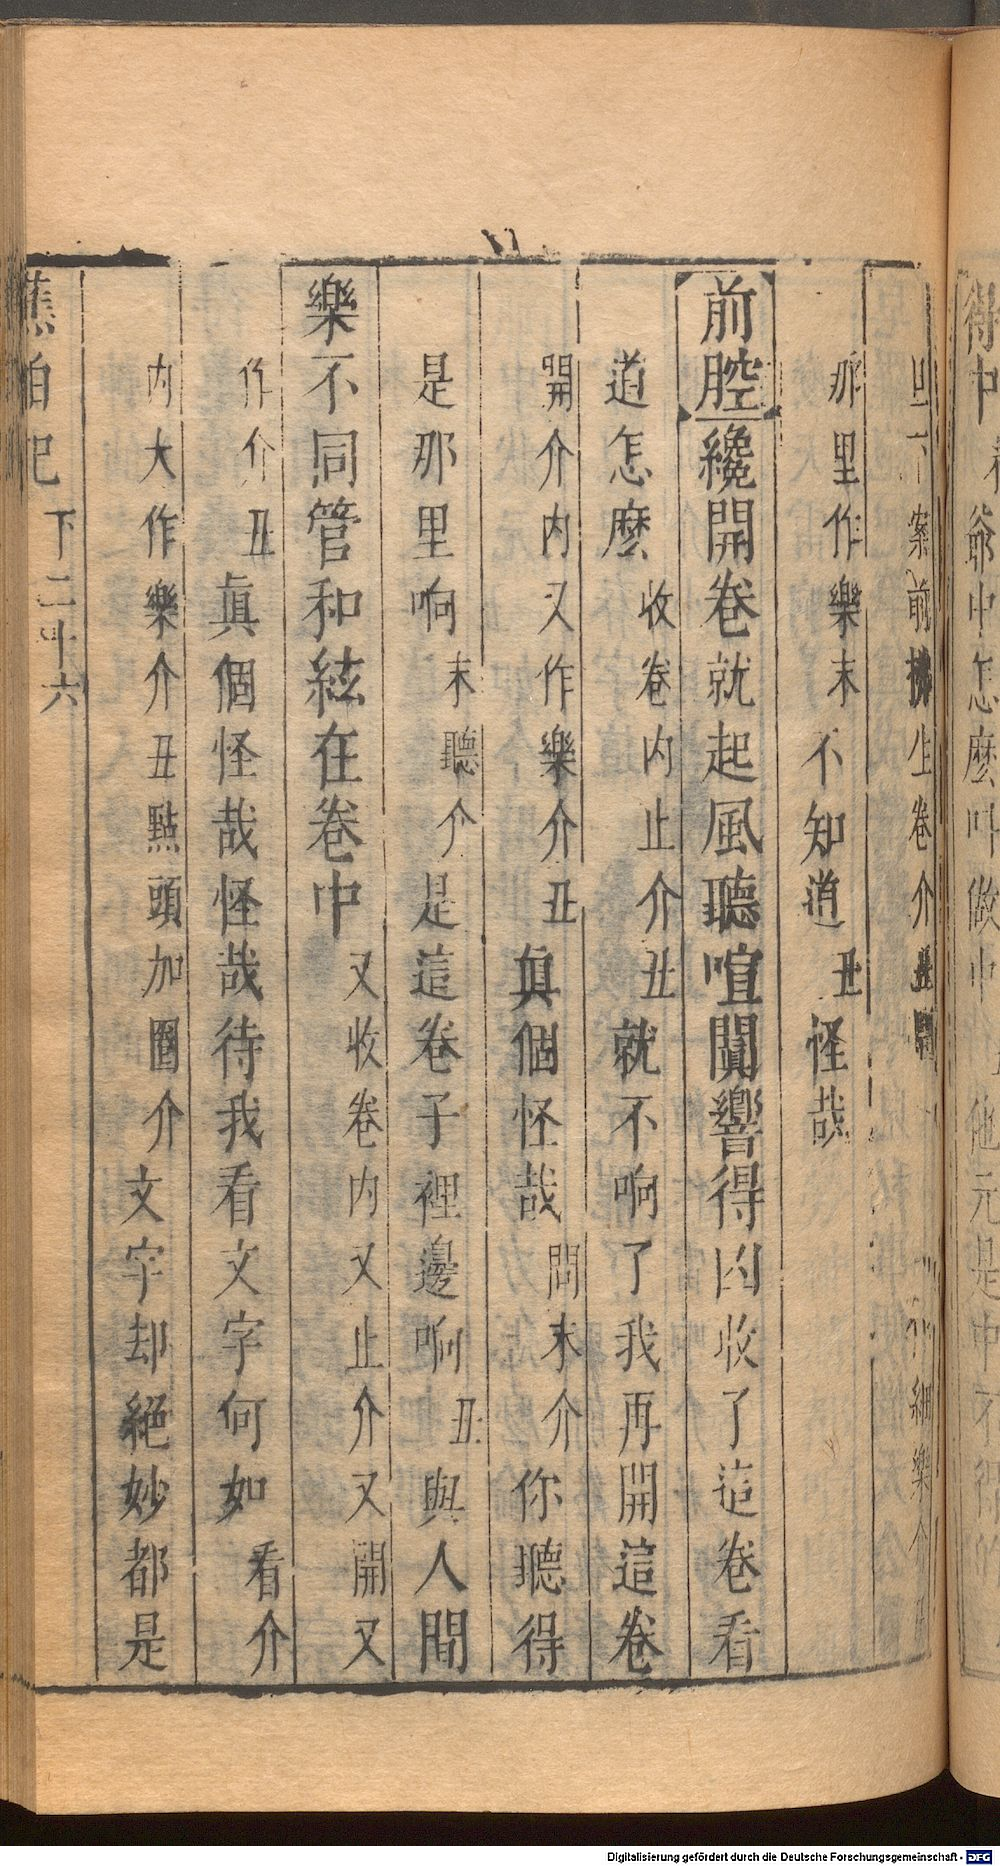 案前拂生卷介丑
細樂介
那里作樂末不知道丑怪哉
前腔纔開卷就起風聽喧闐響得凶收了這卷看
道怎麽收卷内止介丑就不响了我再開這卷
開介内又作樂介丑真個怪哉問末介你聽得
是那里响末聽介是這卷子裡邊响丑與人間
樂不同管和絃在卷中又收卷内又止介又開又
作介丑真個怪哉怪哉待我看文字何如看介
内大作樂介丑點頭加圈介文字却絕妙都是
蕉帕記
下二十六
Digitalisierung gefördert durch die Deutsche Forschungsgemeinschaft - DFG